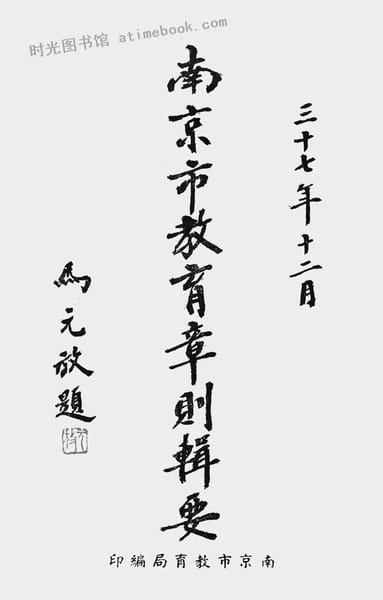 时光图书馆 atimebook.com
三十七年十二月
南京市教育章則輯要
馬元放題
南京市教育局編印